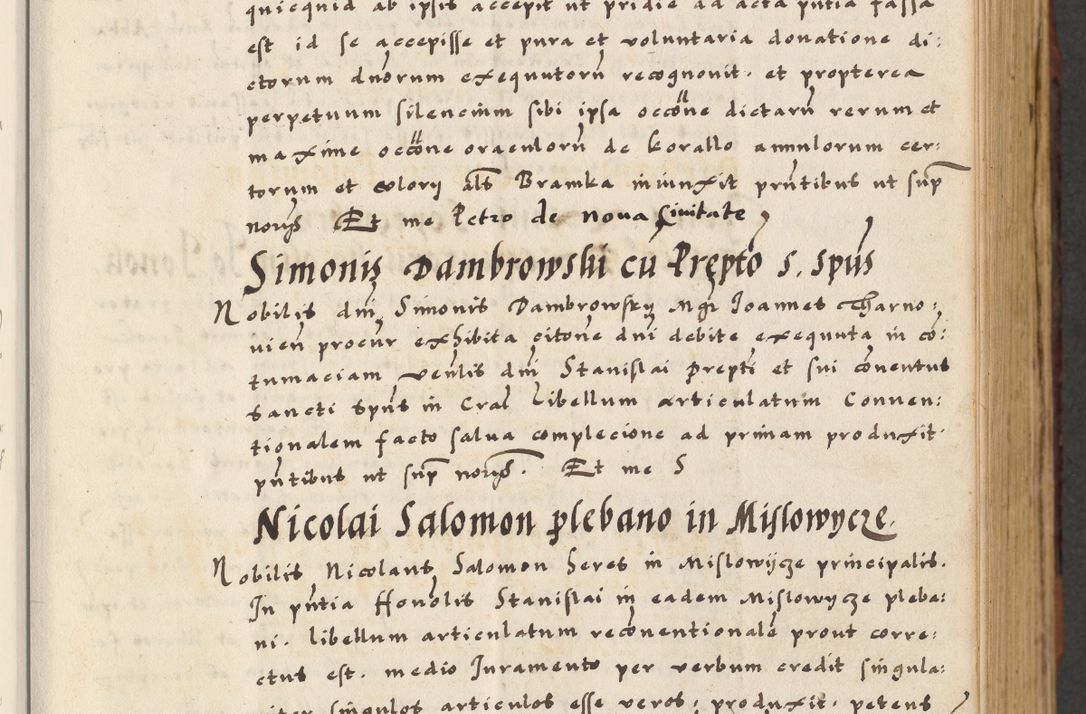 quicquid ab ipsis accepit ut pridie ad acta pñtia fassa
est id se accepisse et pura et voluntaria donatione di:
ctorum dñorum exequutorũ recognovit. et propterea
perpetuum silencium sibi ipsa occõne dictarũ rerum et
maxime occõne oraculorũ de korallo annulorum cer:
torum et colory als Bramka iniunxit pñtibus ut sup
noĩs Et me Petro de nova Civitate
Simonis Dambrowski cũ Prepto s. spũs
Nobilis dñi Simonis Dambrowsky Mgr Joannes Charno:
vien procur exhibita citone dni debite exequuta in cõ:
tumaciam venlis dñi Stanislai Prepti et sui cõventus
sancti spũs in Cral Libellum articulatum Conven:
tionalem facto salva complecione ad primam produxit
pñtibus ut sup noĩs. Et me S
Nicolai Salomon plebano in Mislowycze.
Nobilis Nicolaus Salomon heres in Mislowycze principalis.
In pñtia Honolis Stanislai in eadem Mislowycze pleba:
ni. libellum articulatum recõventionalẽ prout corre:
ctus est. medio Juramento per verbum credit singula:
singulos articulos esse veros; produxit. petens